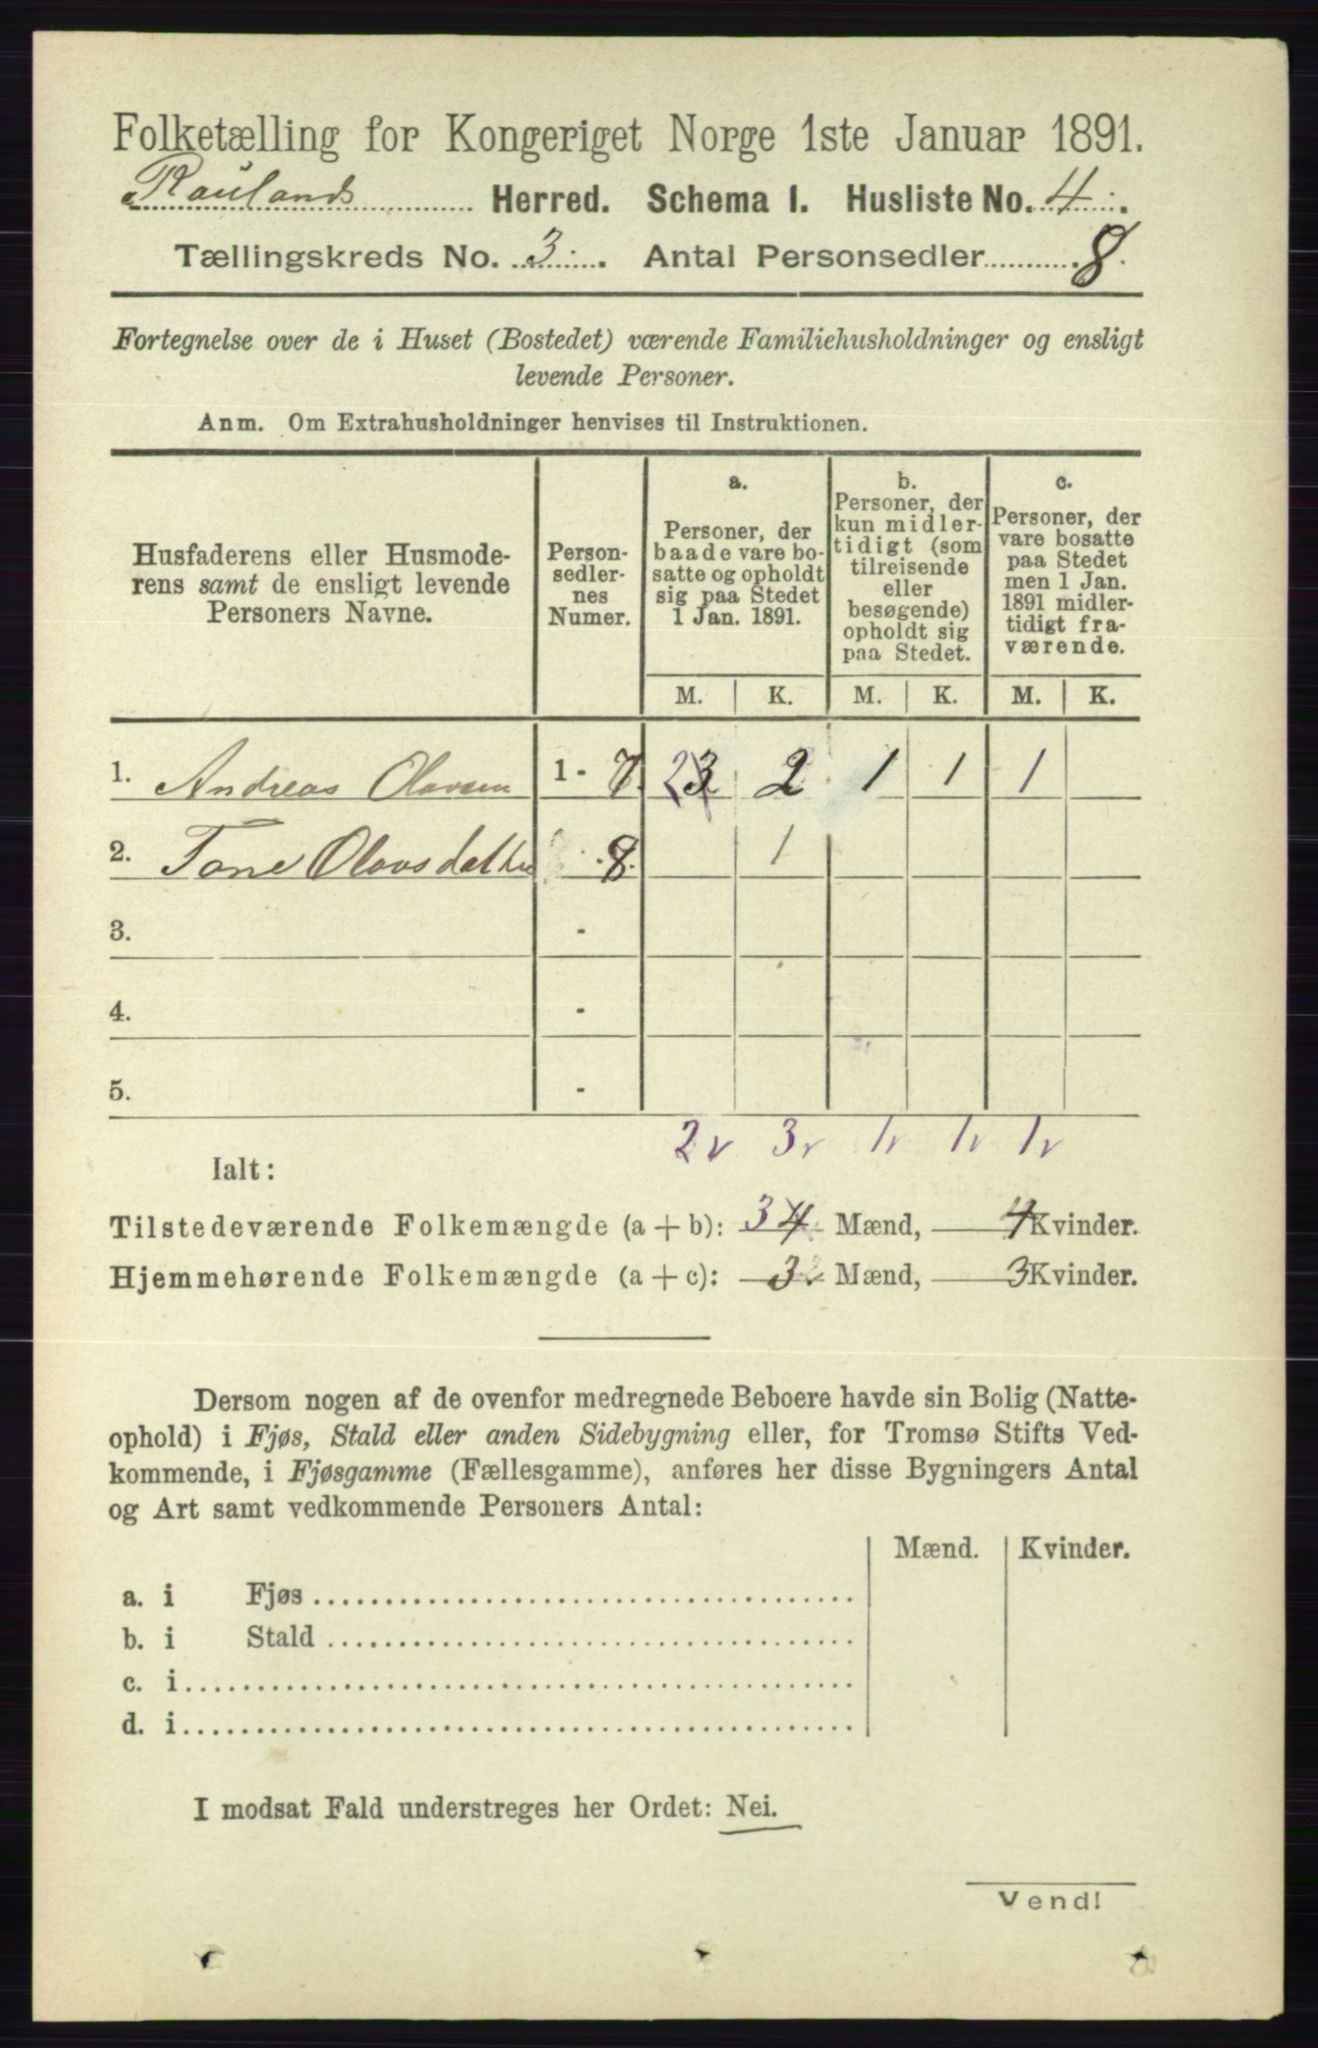 Folketælling for Kongeriget Norge 1ste Januar 1891.
Raulands Herred. Schema 1. Husliste No. 4.
Tællingskreds No. 3. Antal Personsedler 8.
Fortegnelse over de i Huset (Bostedet) værende Familiehusholdninger og ensligt
levende Personer.
Anm. Om Extrahusholdninger henvises til Instruktionen.
Husfaderens eller Husmode-
rens samt de ensligt levende
Personers Navne.
Person-
sedler-
nes
Numer.
a.
Personer, der
baade vare bo-
satte og opholdt
sig paa Stedet
1 Jan. 1891.
b.
Personer, der
kun midler-
tidigt (som
tilreisende
eller
besøgende)
opholdt sig
paa Stedet.
c.
Personer, der
vare bosatte
paa Stedet
men 1 Jan.
1891 midler-
tidigt fra-
værende.
M. K. M. K. M. K.
1. Andreas Olavsen 1 - 7. 2 3 2 1 1 1
2. Tone Olavsdatter 8. 1
3. -
4. -
5. -
2v 3v 1v 1v 1v
Ialt:
Tilstedeværende Folkemængde (a + b): 3 4 Mænd, 4 Kvinder.
Hjemmehørende Folkemængde (a + c): 3 Mænd, 3 Kvinder.
Dersom nogen af de ovenfor medregnede Beboere havde sin Bolig (Natte-
ophold) i Fjøs, Stald eller anden Sidebygning eller, for Tromsø Stifts Ved-
kommende, i Fjøsgamme (Fællesgamme), anføres her disse Bygningers Antal
og Art samt vedkommende Personers Antal:
Mænd. Kvinder.
a. i Fjøs
b. i Stald
c. i
d. i
I modsat Fald understreges her Ordet: Nei.
Vend!